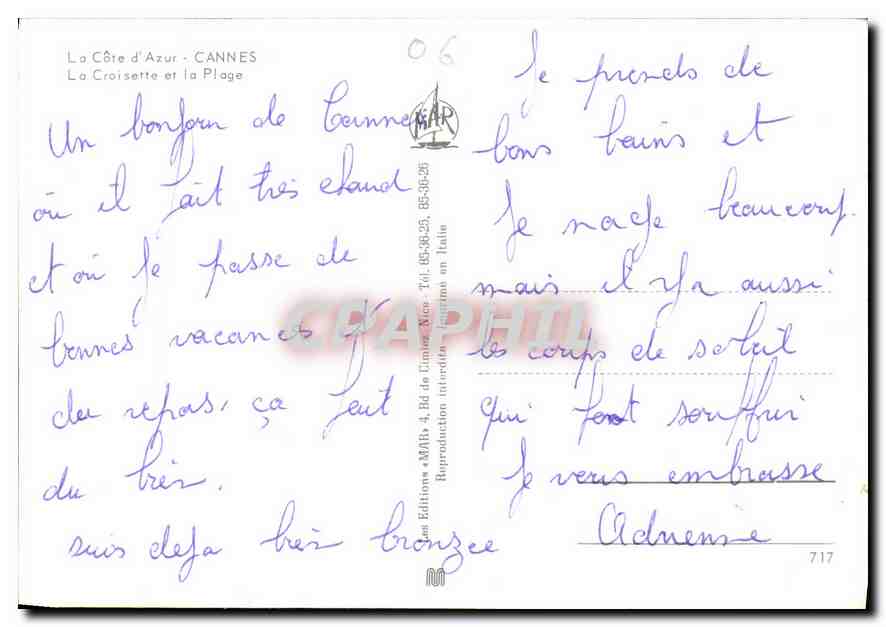 La Côte d'Azur - CANNES
La Croisette et la Plage
06
Un bonjour de Cannes
où il fait très chaud
et où je passe de
bonnes vacances
du repos, ça fait
du bien.
suis deja très bronzee
MAR
Les Editions «MAR» 4, Bd de Cimiez, Nice - Tél. 85-36-25, 85-36-26
Reproduction interdite - Imprimé en Italie
CPAPHIL
Je prends de
bons bains et
Je nage beaucoup.
mais il y a aussi
les coups de soleil
qui font souffrir
Je vous embrasse
Adrienne
717